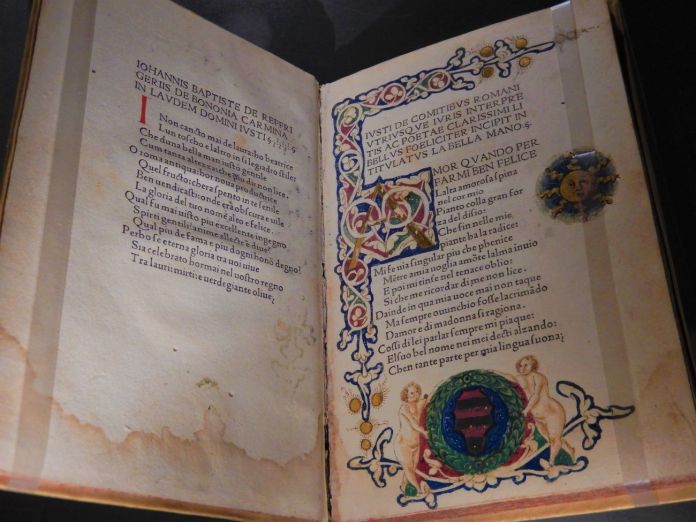 IOHANNIS BAPTISTE DE REFRI
GERIIS DE BONONIA CARMINA
IN LAVDEM DOMINI IVSTI
I Non canto mai de laura cho beatrice
Lun toscho e laltro in si legiadro stile
Che duna bella man iusto gentile
Cum tanta alteza che piu dir non lice.
O roma anti qua hor noua productrice
Quel fructo chera spento in te senile
Ben uendicasti onde era obscura e uile
La gloria del tuo nome alto e felice.
Qual fu mai uisto piu excellente ingegno
Spirti gentili anime allecte e diue?
Qual piu de fama e piu dogni honõ degno?
Per ho se eterna gloria tra uoi uiue
Sia celebrato hormai nel uostro regno
Tra lauri mirti e uerdegiante oliue
IVSTI DE COMITIBVS ROMANI
VTRIVSQVE IVRIS INTERPRE
TIS AC POETAE CLARISSIMI LI
BELLVS FOELICITER INCIPIT IN
TITVLATVS LA BELLA MANO
AMOR QVANDO PER
FARMI BEN FELICE
Lalta amorosa spina
nel cor mio
Pianto colla gran for
za del disio:
Che fin nelle mie
piante ha la radice:
Mi fe uia singular piu che phenice
Mẽtre amia uoglia amõte lalma inuio
E poi mi tinse nel tenace oblio:
Si che me ricordar di me non lice.
Da inde in qua mia uoce mai non taque
Ma sempre ouunchio fosse lacrimãdo
Damor e di madonna si ragiona.
Cossi di lei parlar sempre mi piaque:
El suo bel nome nei mei decti alzando:
Chen tante parte per mia lingua suona